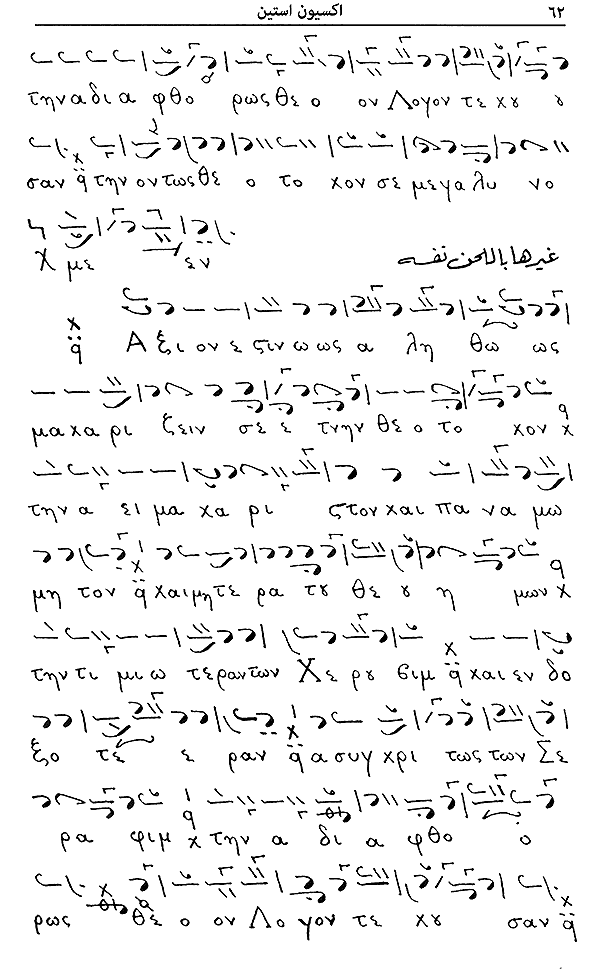 ٦٢ اكسيون استين
την α δι α φθο ρως θε ο ον Λογον τε χȣ ȣ
σαν q̈ την οντως θε ο το χον σε με γα λυ νο
χ με εν
غيرها باللحن نفسه
q̈ Α ξι ον ε ςιν ω ως α λη θω ως
μα χα ρι ζειν σε ε την θε ο το χον χ
την α ει μα χα ρι ςτον χαι πα να μω
μη τον q̈ χαι μητε ρα τȣ θε ȣ η μων χ
την τι μι ω τεραν των Χε ρȣ βιμ q̈ χαι εν δο
ξο τε ε ραν q̈ α συγ χρι τως των Σε
ρα φιμ χ την α δι α φθο ο
ρως θε ο ον Λο γον τε χȣ σαν q̈